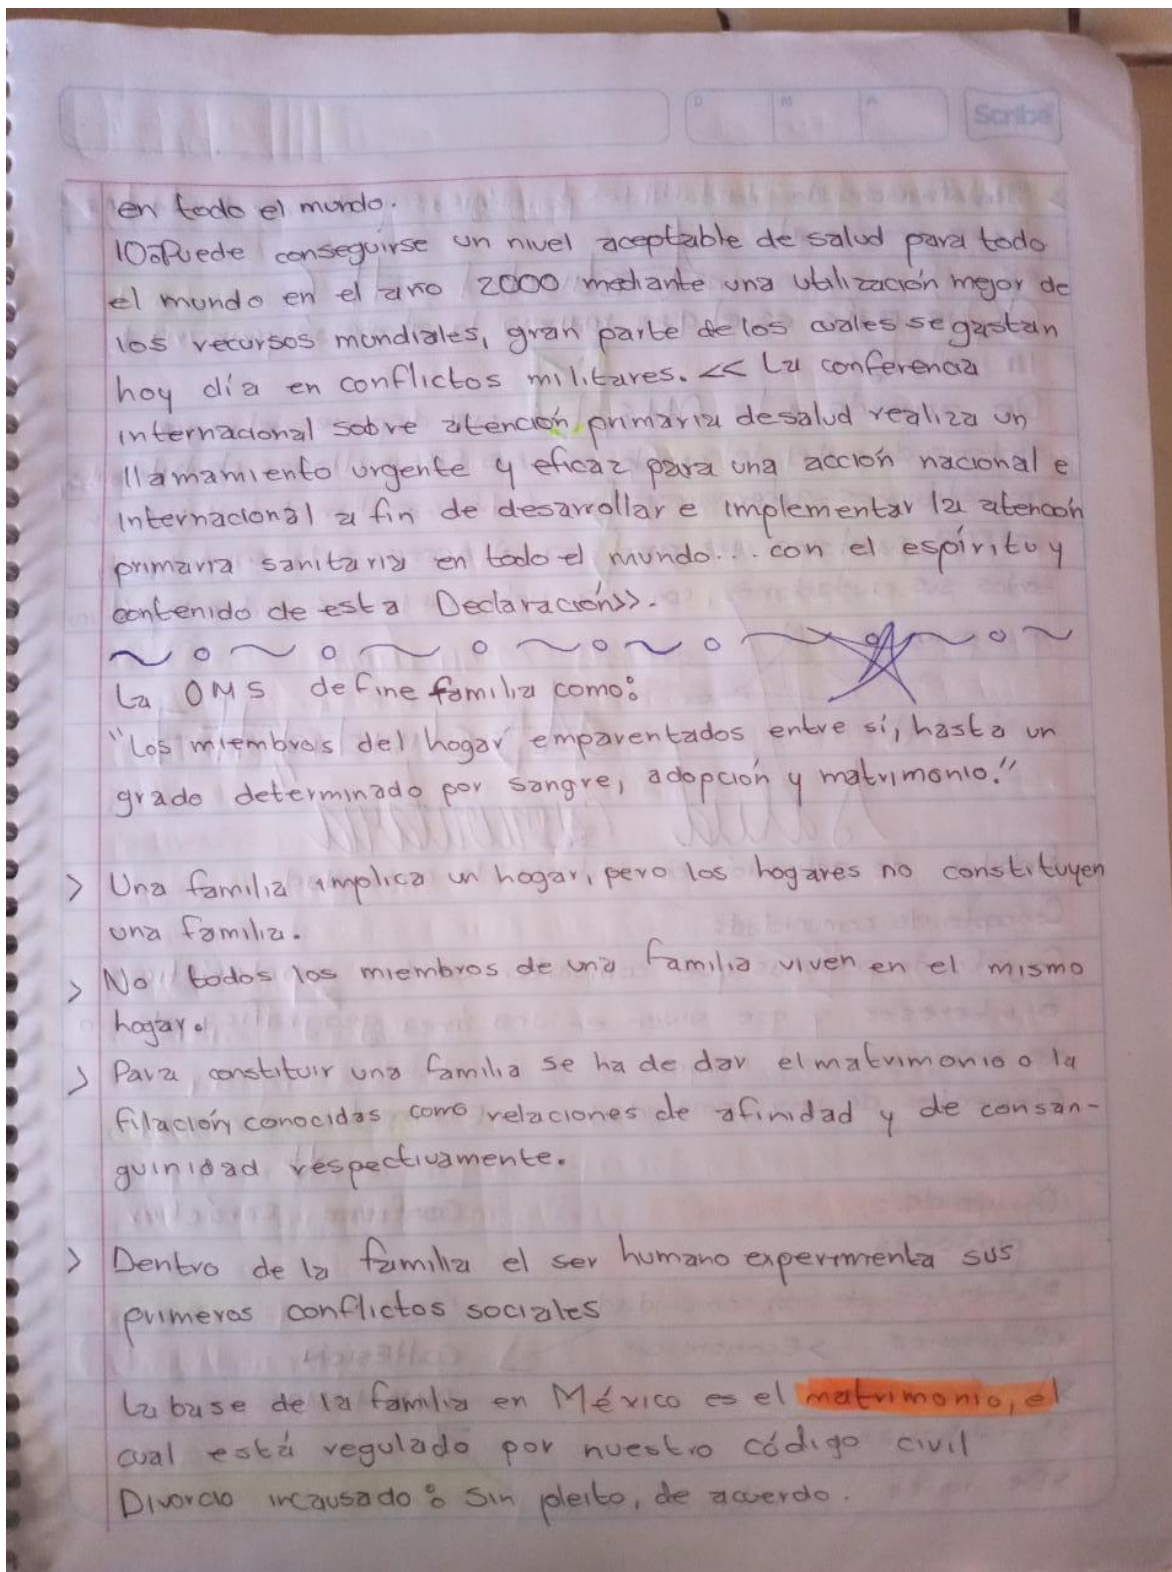 D M A
Scribe
en todo el mundo.
10. Puede conseguirse un nivel aceptable de salud para todo
el mundo en el año 2000 mediante una utilización mejor de
los recursos mundiales, gran parte de los cuales se gastan
hoy día en conflictos militares. << La conferencia
internacional sobre atención primaria de salud realiza un
llamamiento urgente y eficaz para una acción nacional e
internacional a fin de desarrollar e implementar la atención
primaria sanitaria en todo el mundo... con el espíritu y
contenido de esta Declaración>>.
La OMS define familia como:
"Los miembros del hogar emparentados entre sí, hasta un
grado determinado por sangre, adopción y matrimonio."
> Una familia implica un hogar, pero los hogares no constituyen
una familia.
> No todos los miembros de una familia viven en el mismo
hogar.
> Para constituir una familia se ha de dar el matrimonio o la
filación conocidas como relaciones de afinidad y de consan-
guinidad respectivamente.
> Dentro de la familia el ser humano experimenta sus
primeros conflictos sociales
La base de la familia en México es el matrimonio, el
cual está regulado por nuestro código civil
Divorcio incausado: Sin pleito, de acuerdo.